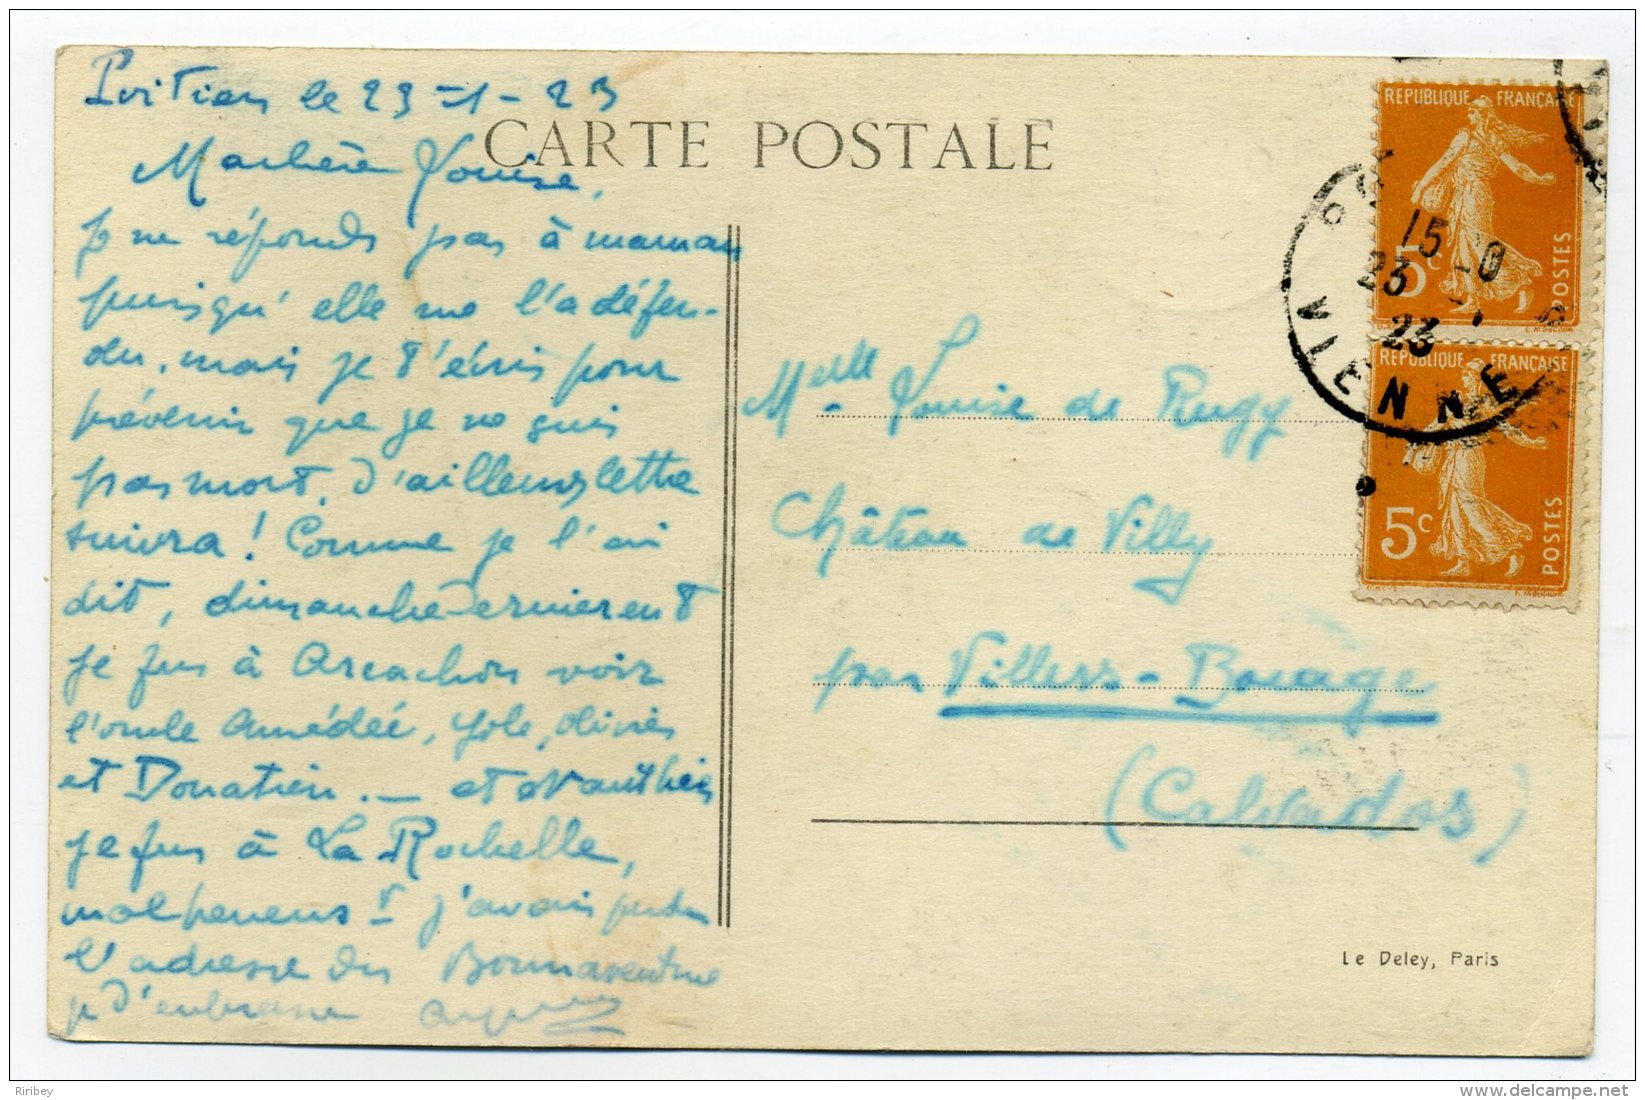 Poitiers le 23-1-23
CARTE POSTALE
Ma chère Louise,
Je ne réponds pas à maman
puisqu'elle me l'a défen-
du, mais je t'écris pour
prévenir que je ne suis
pas mort, d'ailleurs lettre
suivra! Comme je l'ai
dit, dimanche dernier
je fus à Arcachon voir
l'oncle Amédée, Yole,
et Donatien. — et
je fus à La Rochelle,
malheureust j'avais perdu
l'adresse des Bonnaventure
je t'embrasse
Melle Louise de Rugy
Château de Villy
par Villers-Bocage
(Calvados)
RÉPUBLIQUE FRANÇAISE
5c
POSTES
RÉPUBLIQUE FRANÇAISE
5c
POSTES
15
23
23
VIENNE
Le Deley, Paris
Ribey
http://www.delcampe.net